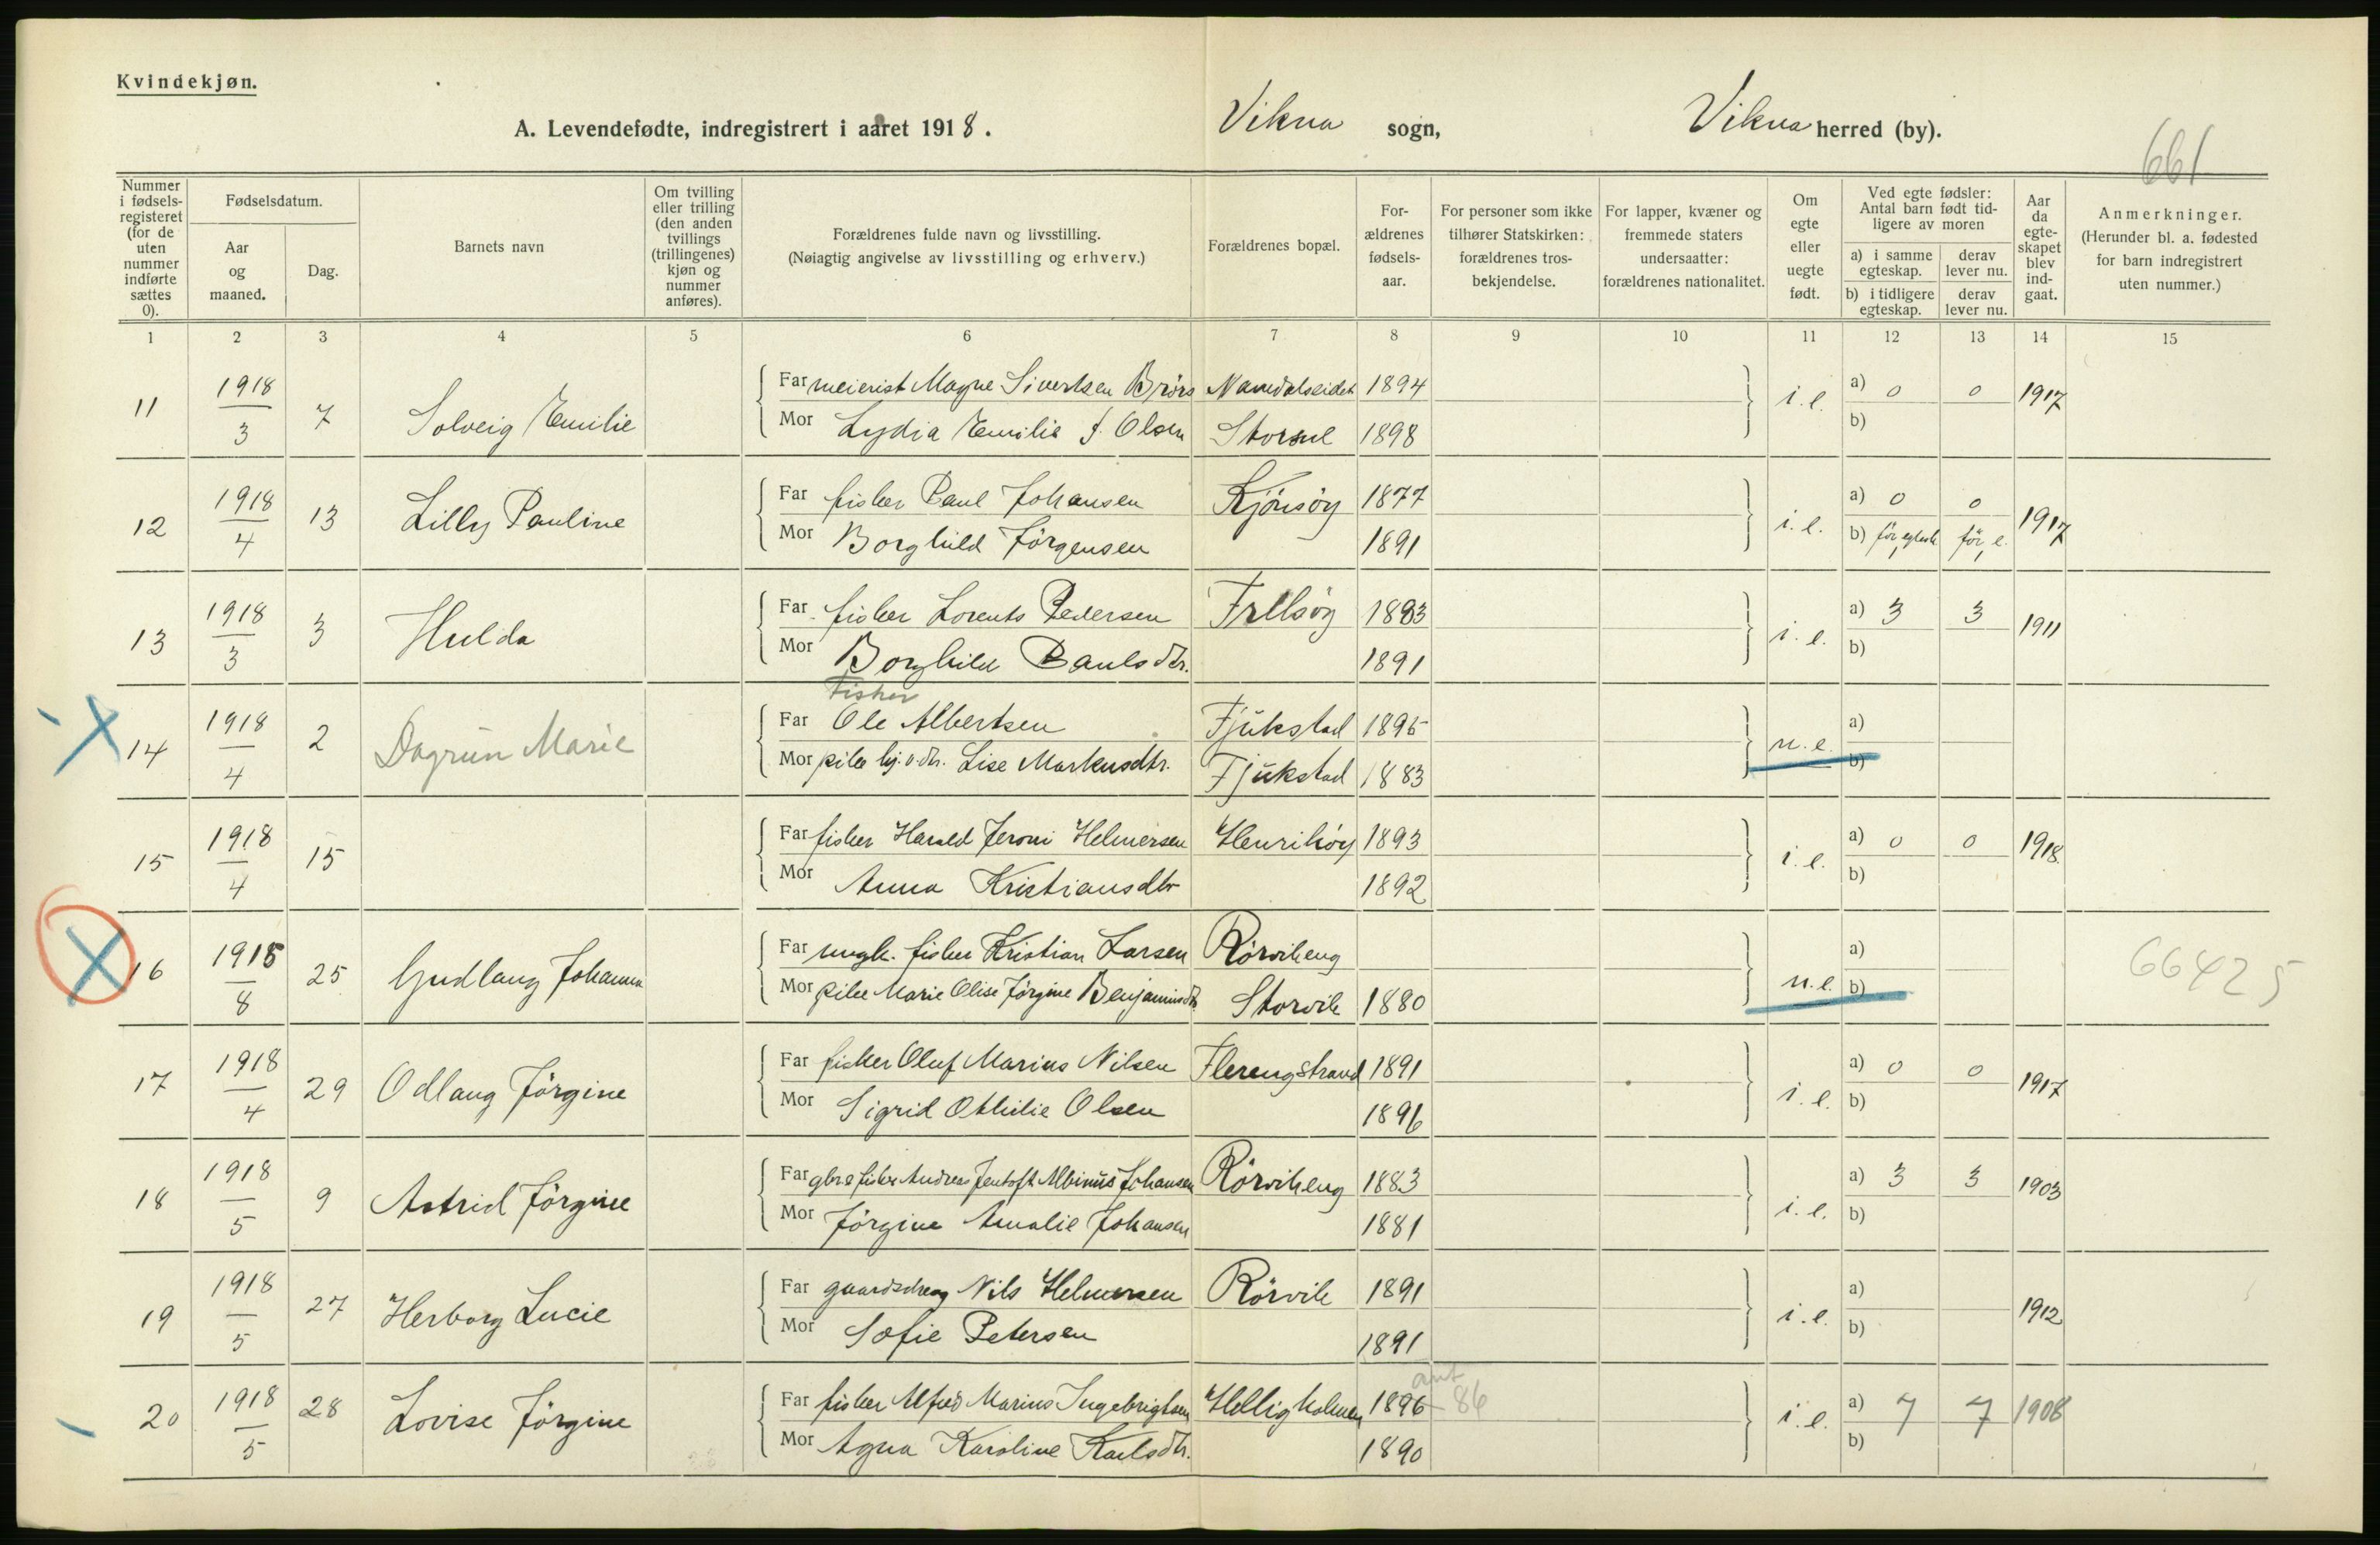 Kvindekjøn.
A. Levendefødte, indregistrert i aaret 1918. Vikna sogn, Vikna herred (by).
661
Nummer i fødsels-registeret (for de uten nummer indførte sættes 0).
Fødselsdatum.
Aar og maaned.
Dag.
Barnets navn
Om tvilling eller trilling (den anden tvillings (trillingenes) kjøn og nummer anføres).
Forældrenes fulde navn og livsstilling.
(Nøiagtig angivelse av livsstilling og erhverv.)
Forældrenes bopæl.
For-ældrenes fødsels-aar.
For personer som ikke tilhører Statskirken: forældrenes tros-bekjendelse.
For lapper, kvæner og fremmede staters undersaatter: forældrenes nationalitet.
Om egte eller uegte født.
Ved egte fødsler: Antal barn født tid-ligere av moren
a) i samme egteskap. derav lever nu.
b) i tidligere egteskap. derav lever nu.
Aar da egte-skapet blev ind-gaat.
Anmerkninger.
(Herunder bl. a. fødested for barn indregistrert uten nummer.)
1 2 3 4 5 6 7 8 9 10 11 12 13 14 15
11 1918/3 7 Solveig Emilie Far meierist Magne Sivertsen Brörs Namdalseidet 1894 i.e. a) 0 0 1917
Mor Lydia Emilie f. Olsen 1898 b)
12 1918/4 13 Lilly Pauline Far fisker Paul Johansen Kjönsöy 1877 i.e. a) 0 0 1917
Mor Borghild Jörgensen 1891 b) för för e.
13 1918/3 3 Hulda Far fisker Lorents Pedersen Frelsöy 1883 i.e. a) 3 3 1911
Mor Borghild Paulsdtr. 1891 b)
Fisker
14 1918/4 2 Dagrun Marie Far Ole Albertsen Fjukstad 1895 u.e. a)
Mor pike Lise Markusdtr. Fjukstad 1883 b)
15 1918/4 15 Far fisker Harald Jeroni Helmersen Henriköy 1893 i.e. a) 0 0 1918
Mor Anna Kristiansdtr 1892 b)
16 1918/8 25 Gudlaug Johanna Far ungk. fisker Kristian Larsen Rörvikeng u.e. a) 66425
Mor pike Marie Olise Jörgine Benjaminsdtr Storvik 1880 b)
17 1918/4 29 Odlaug Jörgine Far fisker Oluf Marius Nilsen Flerengstrand 1891 i.e. a) 0 0 1917
Mor Sigrid Othilie Olsen 1896 b)
18 1918/5 9 Astrid Jörgine Far gbr. fisker Andreas Jentoft Albinus Johansen Rörvikeng 1883 i.e. a) 3 3 1903
Mor Jörgine Amalie Johansen 1881 b)
19 1918/5 27 Herborg Lucie Far gaardsdreng Nils Helmersen Rörvik 1891 i.e. a) 1912
Mor Sofie Petersen 1891 b)
20 1918/5 28 Lovise Jörgine Far fisker Alfred Marius Ingebrigtsen Helligholmen 1896 ant 86 i.e. a) 7 7 1908
Mor Agna Karoline Karlsdtr. 1890 b)